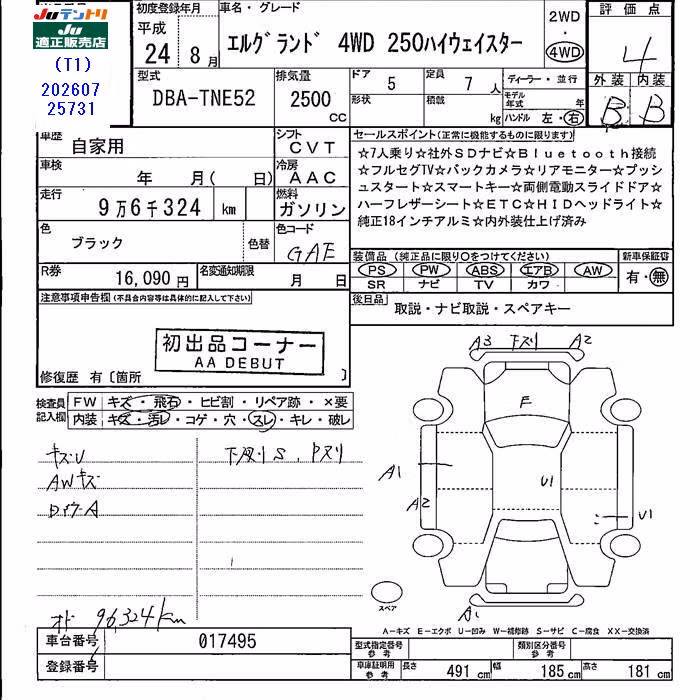 Juテントリ
Ju
適正販売店
(T1)
202607
25731
初度登録年月
平成
24年 8月
車名・グレード
エルグランド 4WD 250ハイウェイスター
2WD
・
4WD
評価点
4
外装 内装
B B
型式
DBA-TNE52
排気量
2500
cc
ドア 5
定員 7 人
形状
積載 kg
ディーラー・並行
モデル年式 年
ハンドル 左・右
車歴
自家用
シフト
CVT
車検
年 月( 日)
冷房
AAC
走行
9万6千324 km
燃料
ガソリン
色
ブラック
色替
色コード
GAE
R券
16,090円
名変通知期限
月 日
セールスポイント(正常に機能するものに限ります)
☆7人乗り☆社外SDナビ☆Bluetooth接続
☆フルセグTV☆バックカメラ☆リアモニター☆プッシ
ュスタート☆スマートキー☆両側電動スライドドア☆
ハーフレザーシート☆ETC☆HIDヘッドライト☆
純正18インチアルミ☆内外装仕上げ済み
装備品(純正品に限り〇をつけてください)
新車保証書
PS PW ABS エアB AW
SR ナビ TV カワ
有・無
後日品
取説・ナビ取説・スペアキー
注意事項申告欄(不具合内容等は具体的に記入して下さい)
初出品コーナー
AA DEBUT
修復歴 有〔箇所 〕
検査員記入欄
FW キズ・飛石・ヒビ割・リペア跡・×要
内装 キズ・汚レ・コゲ・穴・スレ・キレ・破レ
キズU
AWキズ
下廻りS、Pズリ
オド 96,324km
A3 下ズリ A2
F
A1
A2
U1
U1
A1
スペア
A―キズ E―エクボ U―凹み W―補修跡 S―サビ C―腐食 XX―交換済
車台番号
017495
登録番号
型式指定番号 参考
類別区分番号 参考
車庫証明用 参考
長さ 491cm 幅 185cm 高さ 181cm